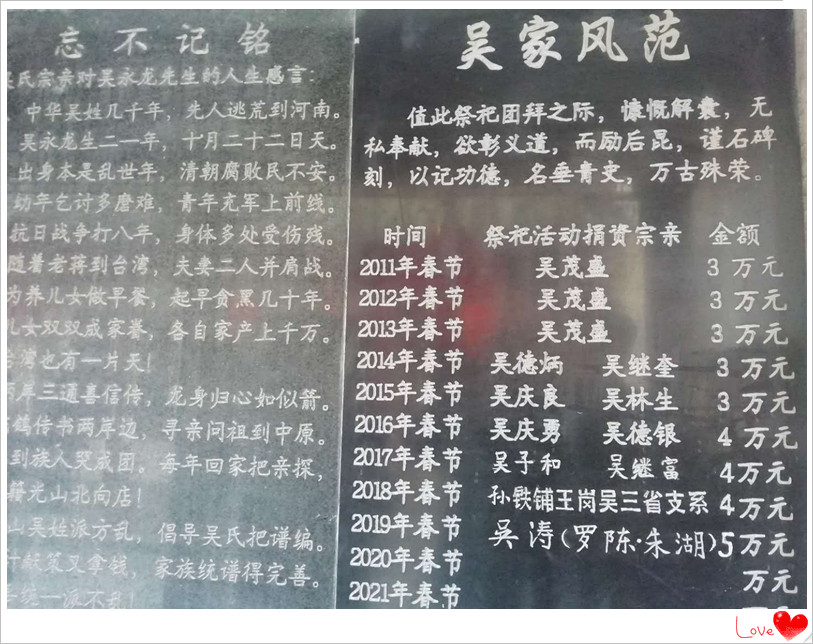 忘不记铭
氏宗亲对吴永龙先生的人生感言：
中华吴姓几千年，先人逃荒到河南。
吴永龙生二一年，十月二十二日天。
出身本是乱世年，清朝腐败民不安。
幼年乞讨多磨难，青年充军上前线。
抗日战争打八年，身体多处受伤残。
随着老蒋到台湾，夫妻二人并肩战。
为养儿女做早餐，起早贪黑几十年。
儿女双双成家誉，各自家产上千万。
湾也有一片天！
岸三通喜信传，龙身归心如似箭。
鹤传书两岸边，寻亲问祖到中原。
到族人哭成团。每年回家把亲探，
籍光山北向店！
山吴姓派方乱，倡导吴氏把谱编。
献策又拿钱，家族统谱得完善。
统一派不乱！
吴家风范
值此祭祀团拜之际，慷慨解囊，无
私奉献，欲彰义道，而励后昆，谨石碑
刻，以记功德，名垂青史，万古殊荣。
时间 祭祀活动捐资宗亲 金额
2011年春节 吴茂盛 3万元
2012年春节 吴茂盛 3万元
2013年春节 吴茂盛 3万元
2014年春节 吴德炳 吴继奎 3万元
2015年春节 吴庆良 吴林生 3万元
2016年春节 吴庆勇 吴德银 4万元
2017年春节 吴子和 吴继富 4万元
2018年春节 孙铁铺王岗吴三省支系 4万元
2019年春节 吴涛(罗陈·朱湖) 5万元
2020年春节 万元
2021年春节
Love